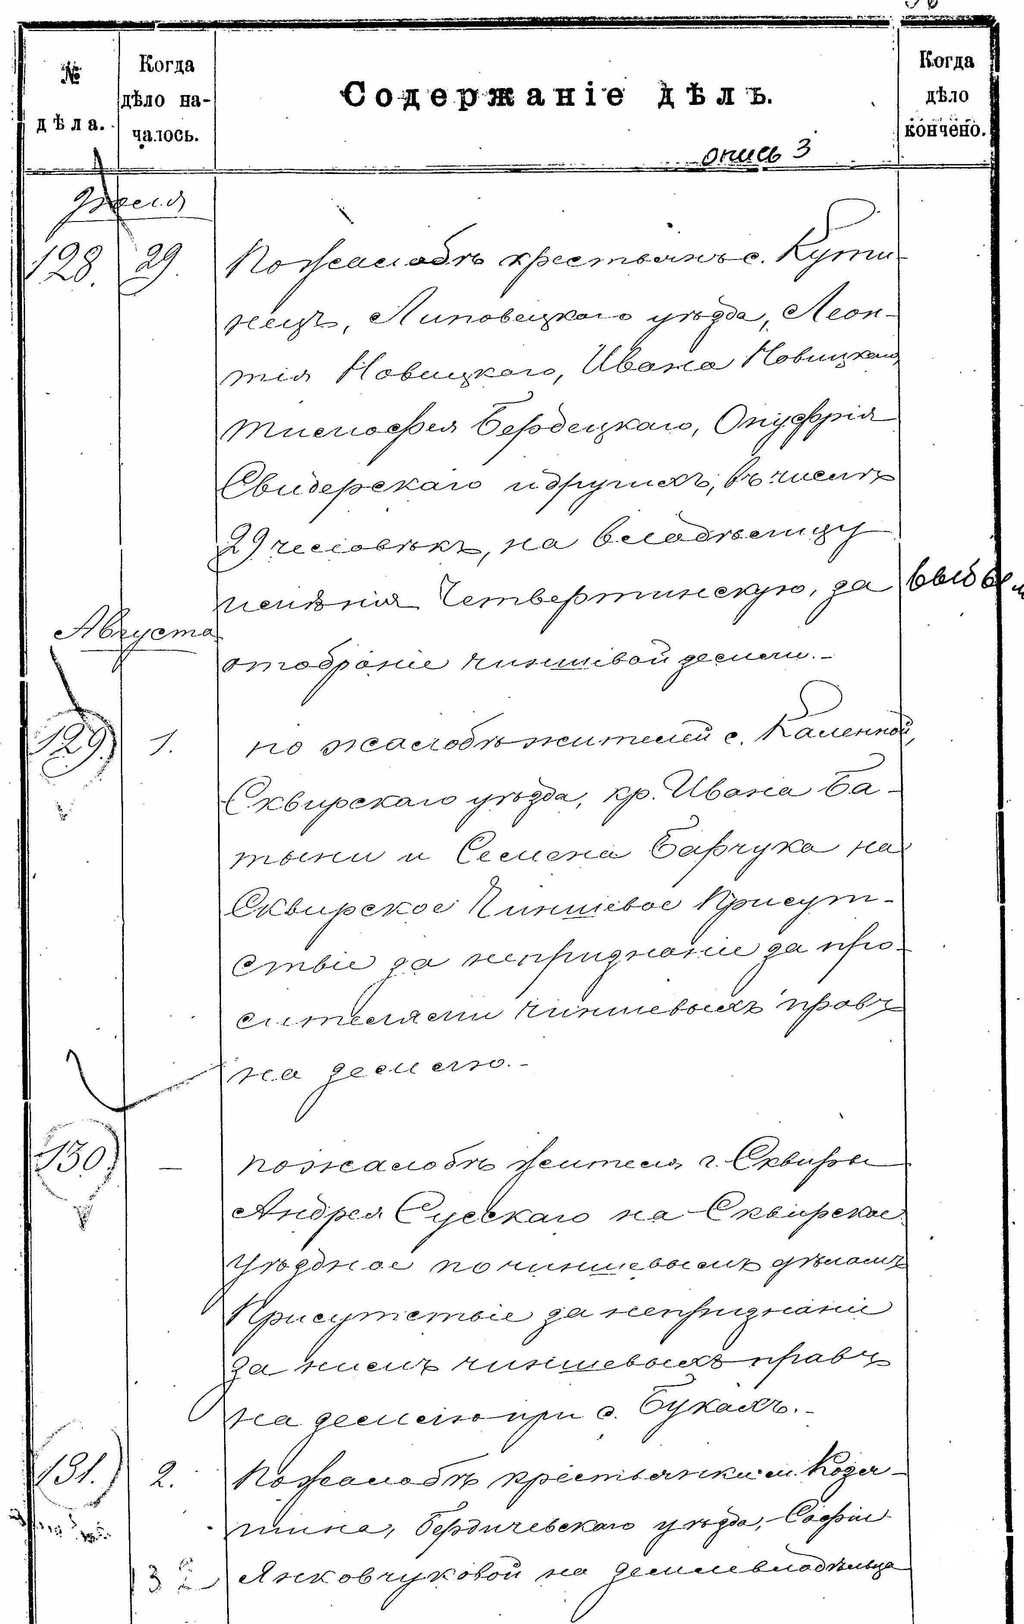 № дѣла.
Когда дѣло началось.
Содержаніе дѣлъ.
Когда дѣло кончено.
опись 3
Іюля
128. 29. По жалобѣ крестьянъ с. Кути-
нецъ, Липовецкаго уѣзда, Леон-
тія Новицкаго, Ивана Новицкаго,
Тимофея Бербецкаго, Онуфрія
Свидерскаго и другихъ, въ числѣ
29 человѣкъ, на владѣлицу
имѣнія Четвертинскую, за
выбыл
Августа
отобраніе чиншевой земли.-
129. 1. по жалобѣ жителей с. Каленной,
Сквирскаго уѣзда, кр. Ивана Ба-
тыни и Семена Барчука на
Сквирское Чиншевое Присут-
ствіе за непризнаніе за про-
сителями чиншевыхъ правъ
на землю.-
130. — по жалобѣ жителя г. Сквиры
Андрея Сусскаго на Сквирское
Уѣздное по чиншевымъ дѣламъ
Присутствіе за непризнаніе
за нимъ чиншевыхъ правъ
на землю при с. Букахъ.-
131. 2. По жалобѣ крестьянки м. Козя-
тина, Бердичевскаго уѣзда, Софіи
32 Янковчуковой на землевладѣльца